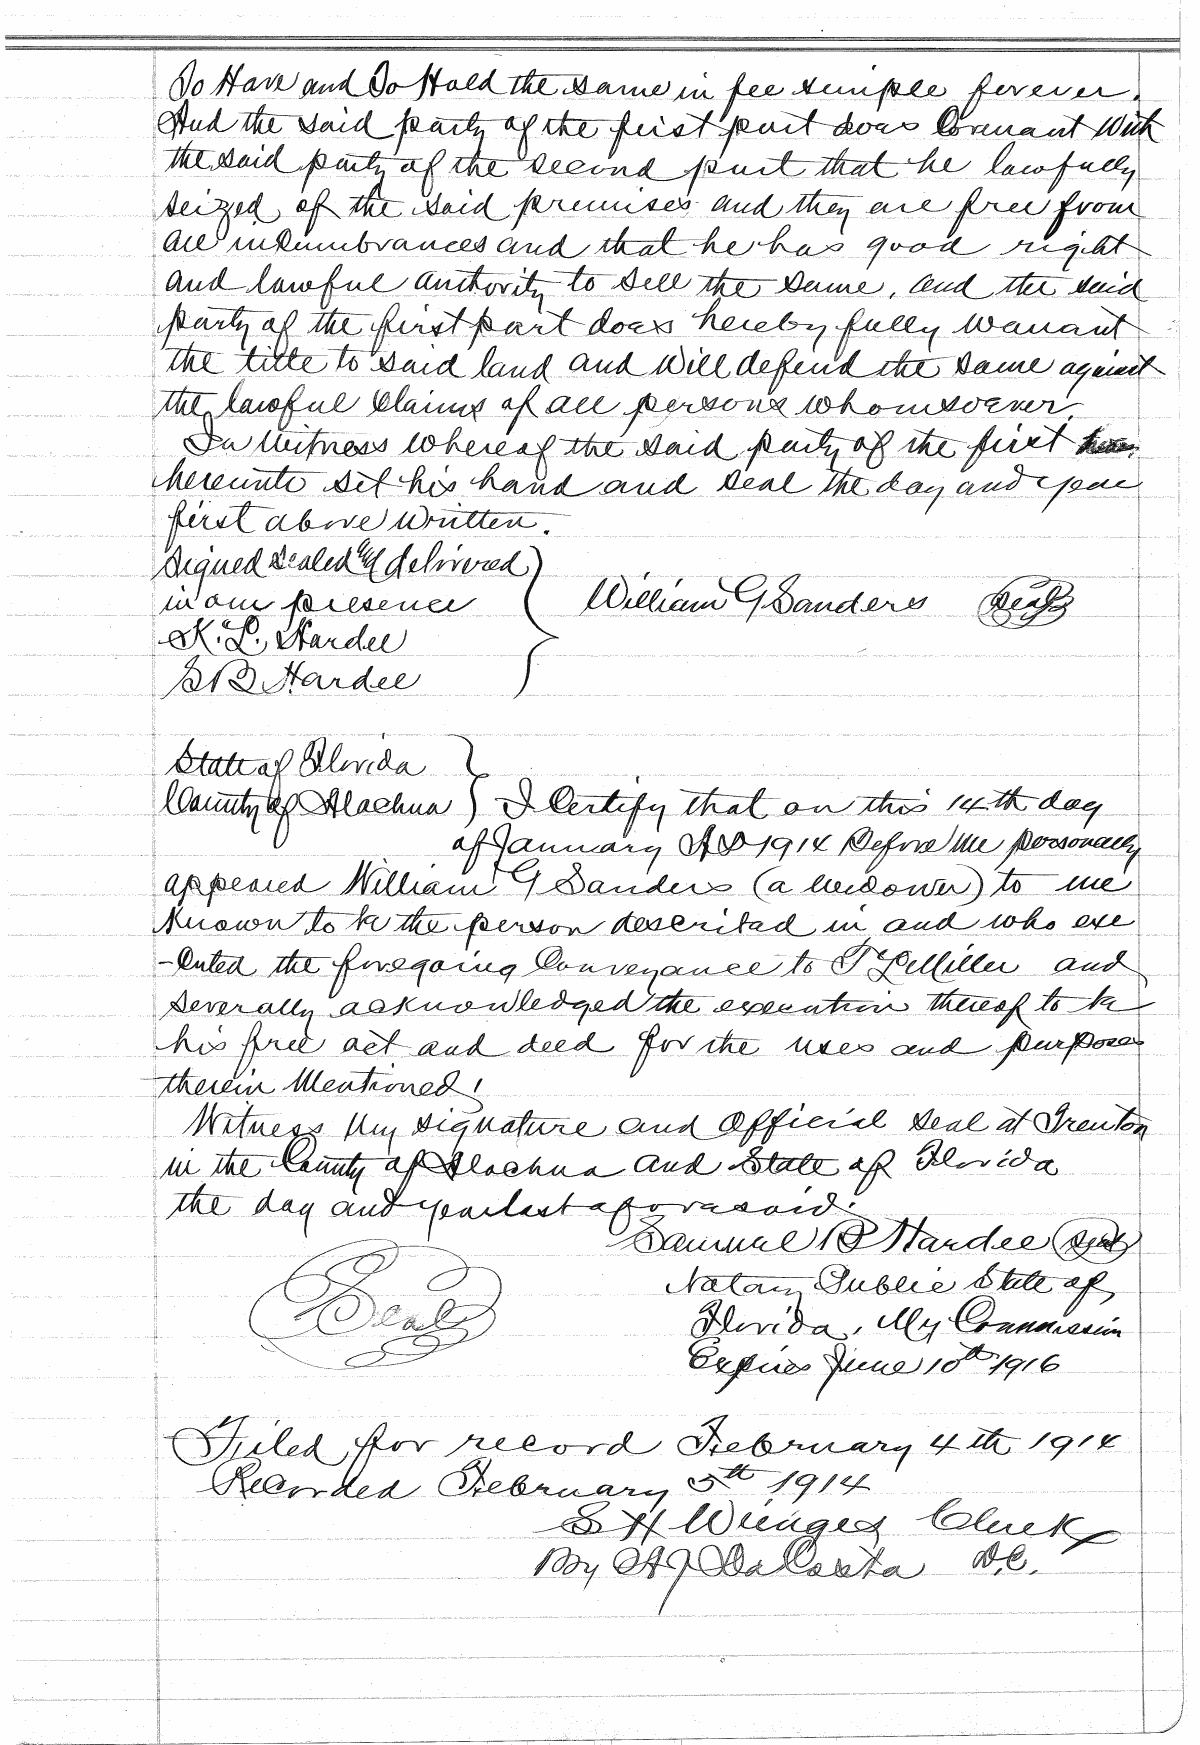 To Have and To Hold the same in fee simple forever.
And the said party of the first part does Covenant With
the said party of the second part that he lawfully
seized of the said premises and they are free from
all incumbrances and that he has good right
and lawful authority to sell the same, and the said
party of the first part does hereby fully Warrant
the title to said land and Will defend the same against
the lawful Claims of all persons whomsoever.
In Witness whereof the said party of the first
hereunto set his hand and seal the day and year
first above Written.
Signed sealed and delivered
in our presence
William G Sanders Seal
K. L. Hardee
S B Hardee
State of Florida
County of Alachua } I Certify that on this 14th day
of January AD 1914 Before Me personally
appeared William G Sanders (a widower) to me
Known to be the person described in and who exe
-cuted the foregoing Conveyance to T L Miller and
severally acknowledged the execution thereof to be
his free act and deed for the uses and purposes
therein Mentioned.
Witness My signature and Official Seal at Trenton
in the County of Alachua and State of Florida
the day and year last aforesaid.
Samuel B Hardee Seal
Seal
Notary Public State of
Florida, My Commission
Expires June 10th 1916
Filed for record February 4th 1914
Recorded February 5th 1914
S H Wienges Clerk
By A J DaCosta D.C.